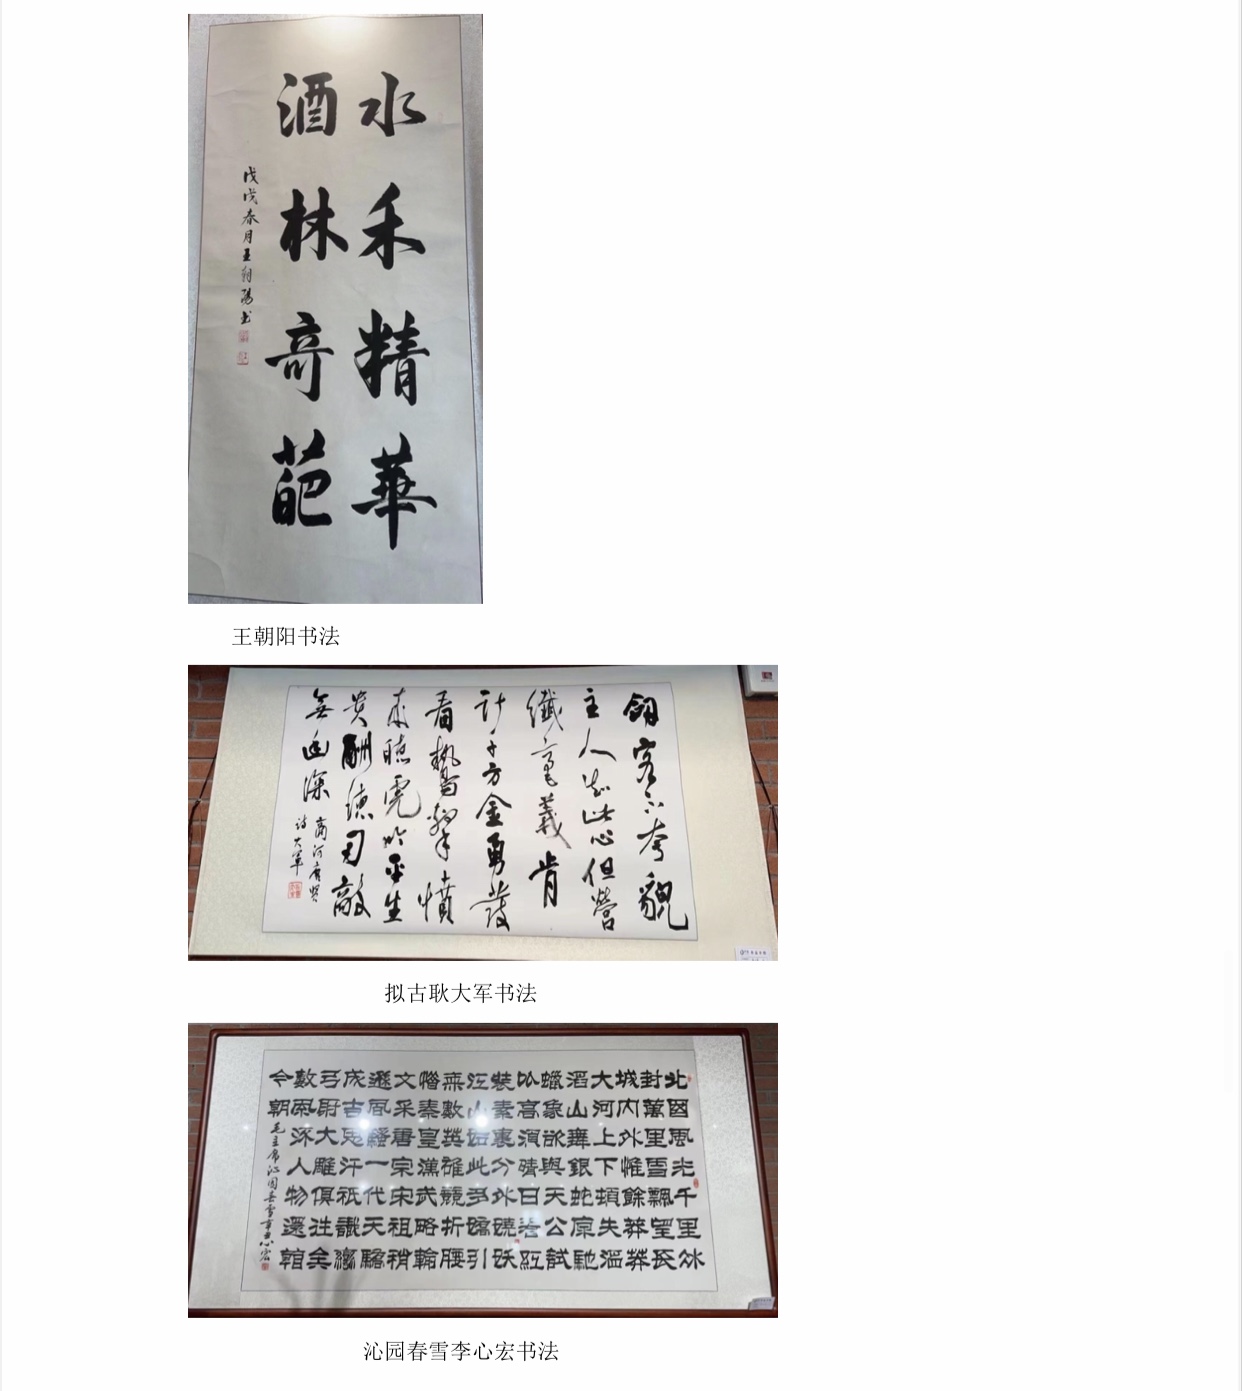 水禾精華
酒林奇葩
戊戌春月王朝陽书
王朝阳书法
劍客不夸貌
主人知此心但營
纖毫義肯
計千万金勇發
看鷙擊憤
來聽虎吟平生
貴酬德刃敵
無幽深
商河唐贤
诗大軍
拟古耿大军书法
北國風光千里冰
封萬里雪飄望長
城內外惟餘莽莽
大河上下頓失滔
滔山舞銀蛇原馳
蠟象欲與天公試
比高須晴日看紅
裝素裹分外嬈妖
江山如此多嬌引
無數英雄競折腰
惜秦皇漢武略輸
文采唐宗宋祖稍
遜風騷一代天驕
成吉思汗祇識彎
弓射大雕俱往矣
數風流人物還看
今朝
毛主席沁園春雪李心宏
沁园春雪李心宏书法